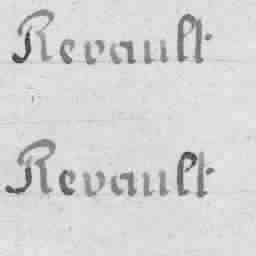 Revault
Revault